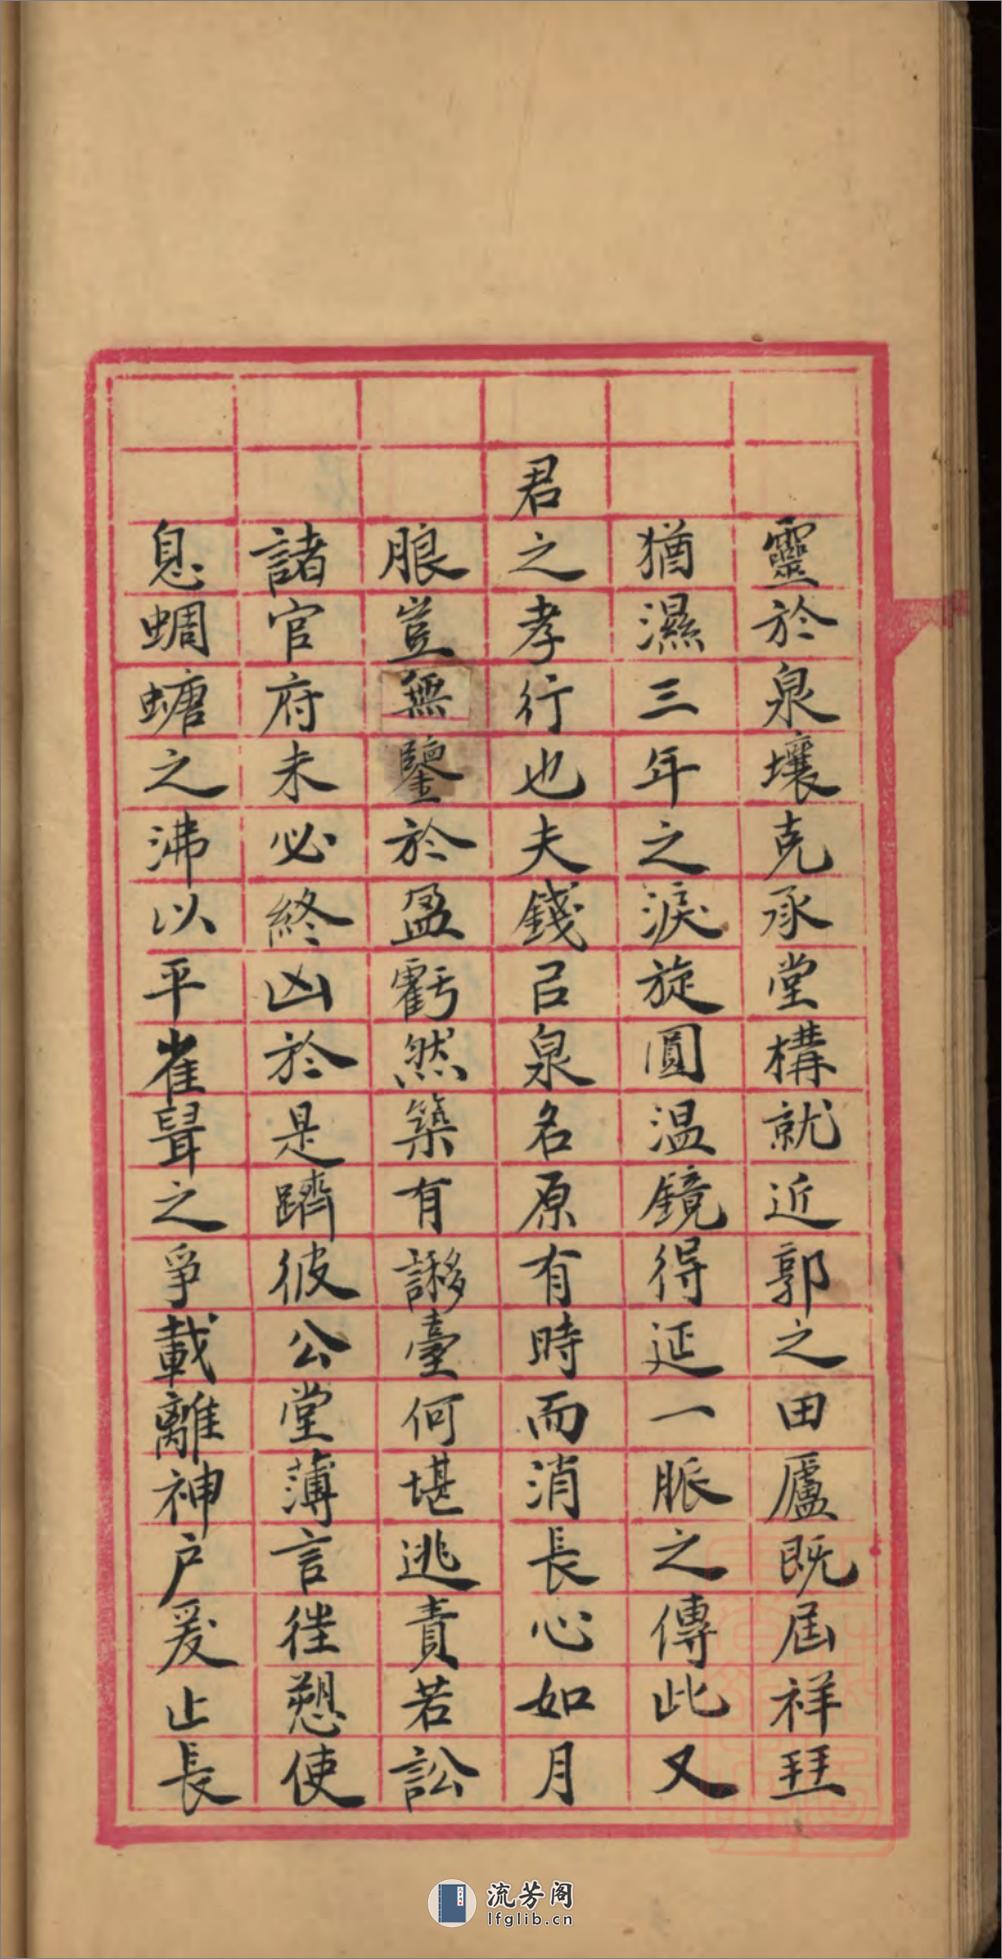 靈於泉壤克承堂構就近郭之田廬既屆祥琹
猶濕三年之淚旋圓温鏡得延一脈之傳此又
君之孝行也夫錢㠯泉名原有時而消長心如月
朖豈無鑒於盈虧然築有謻臺何堪逃責若訟
諸官府未必終凶於是躋彼公堂薄言徃愬使
息蜩螗之沸以平雀聟之爭載離神户爰止長
流芳阁
lfglib.cn